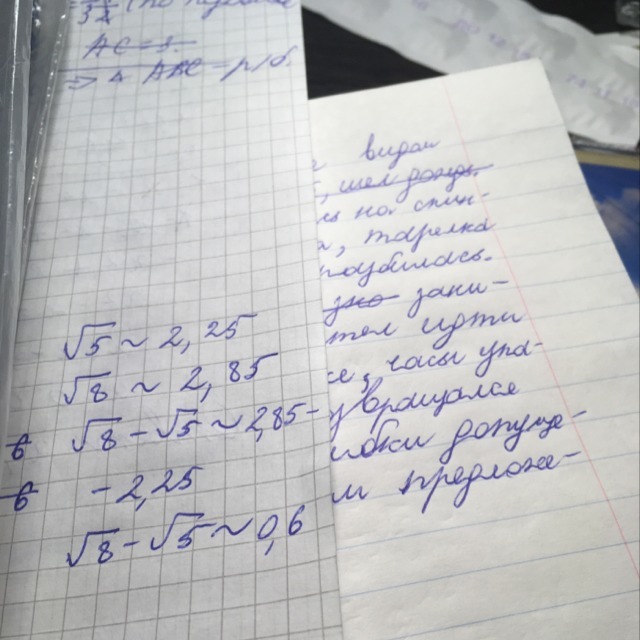 AC = 5
=> △ ABC = р/б
√5 ~ 2,25
√8 ~ 2,85
√8 - √5 ~ 2,85 -
- 2,25
√8 - √5 ~ 0,6
видам
, шел дождь
на спин-
, тарелка
разбилась.
заки-
тел идти
е, часы упа-
вращался
ибки допуще-
и предложе-